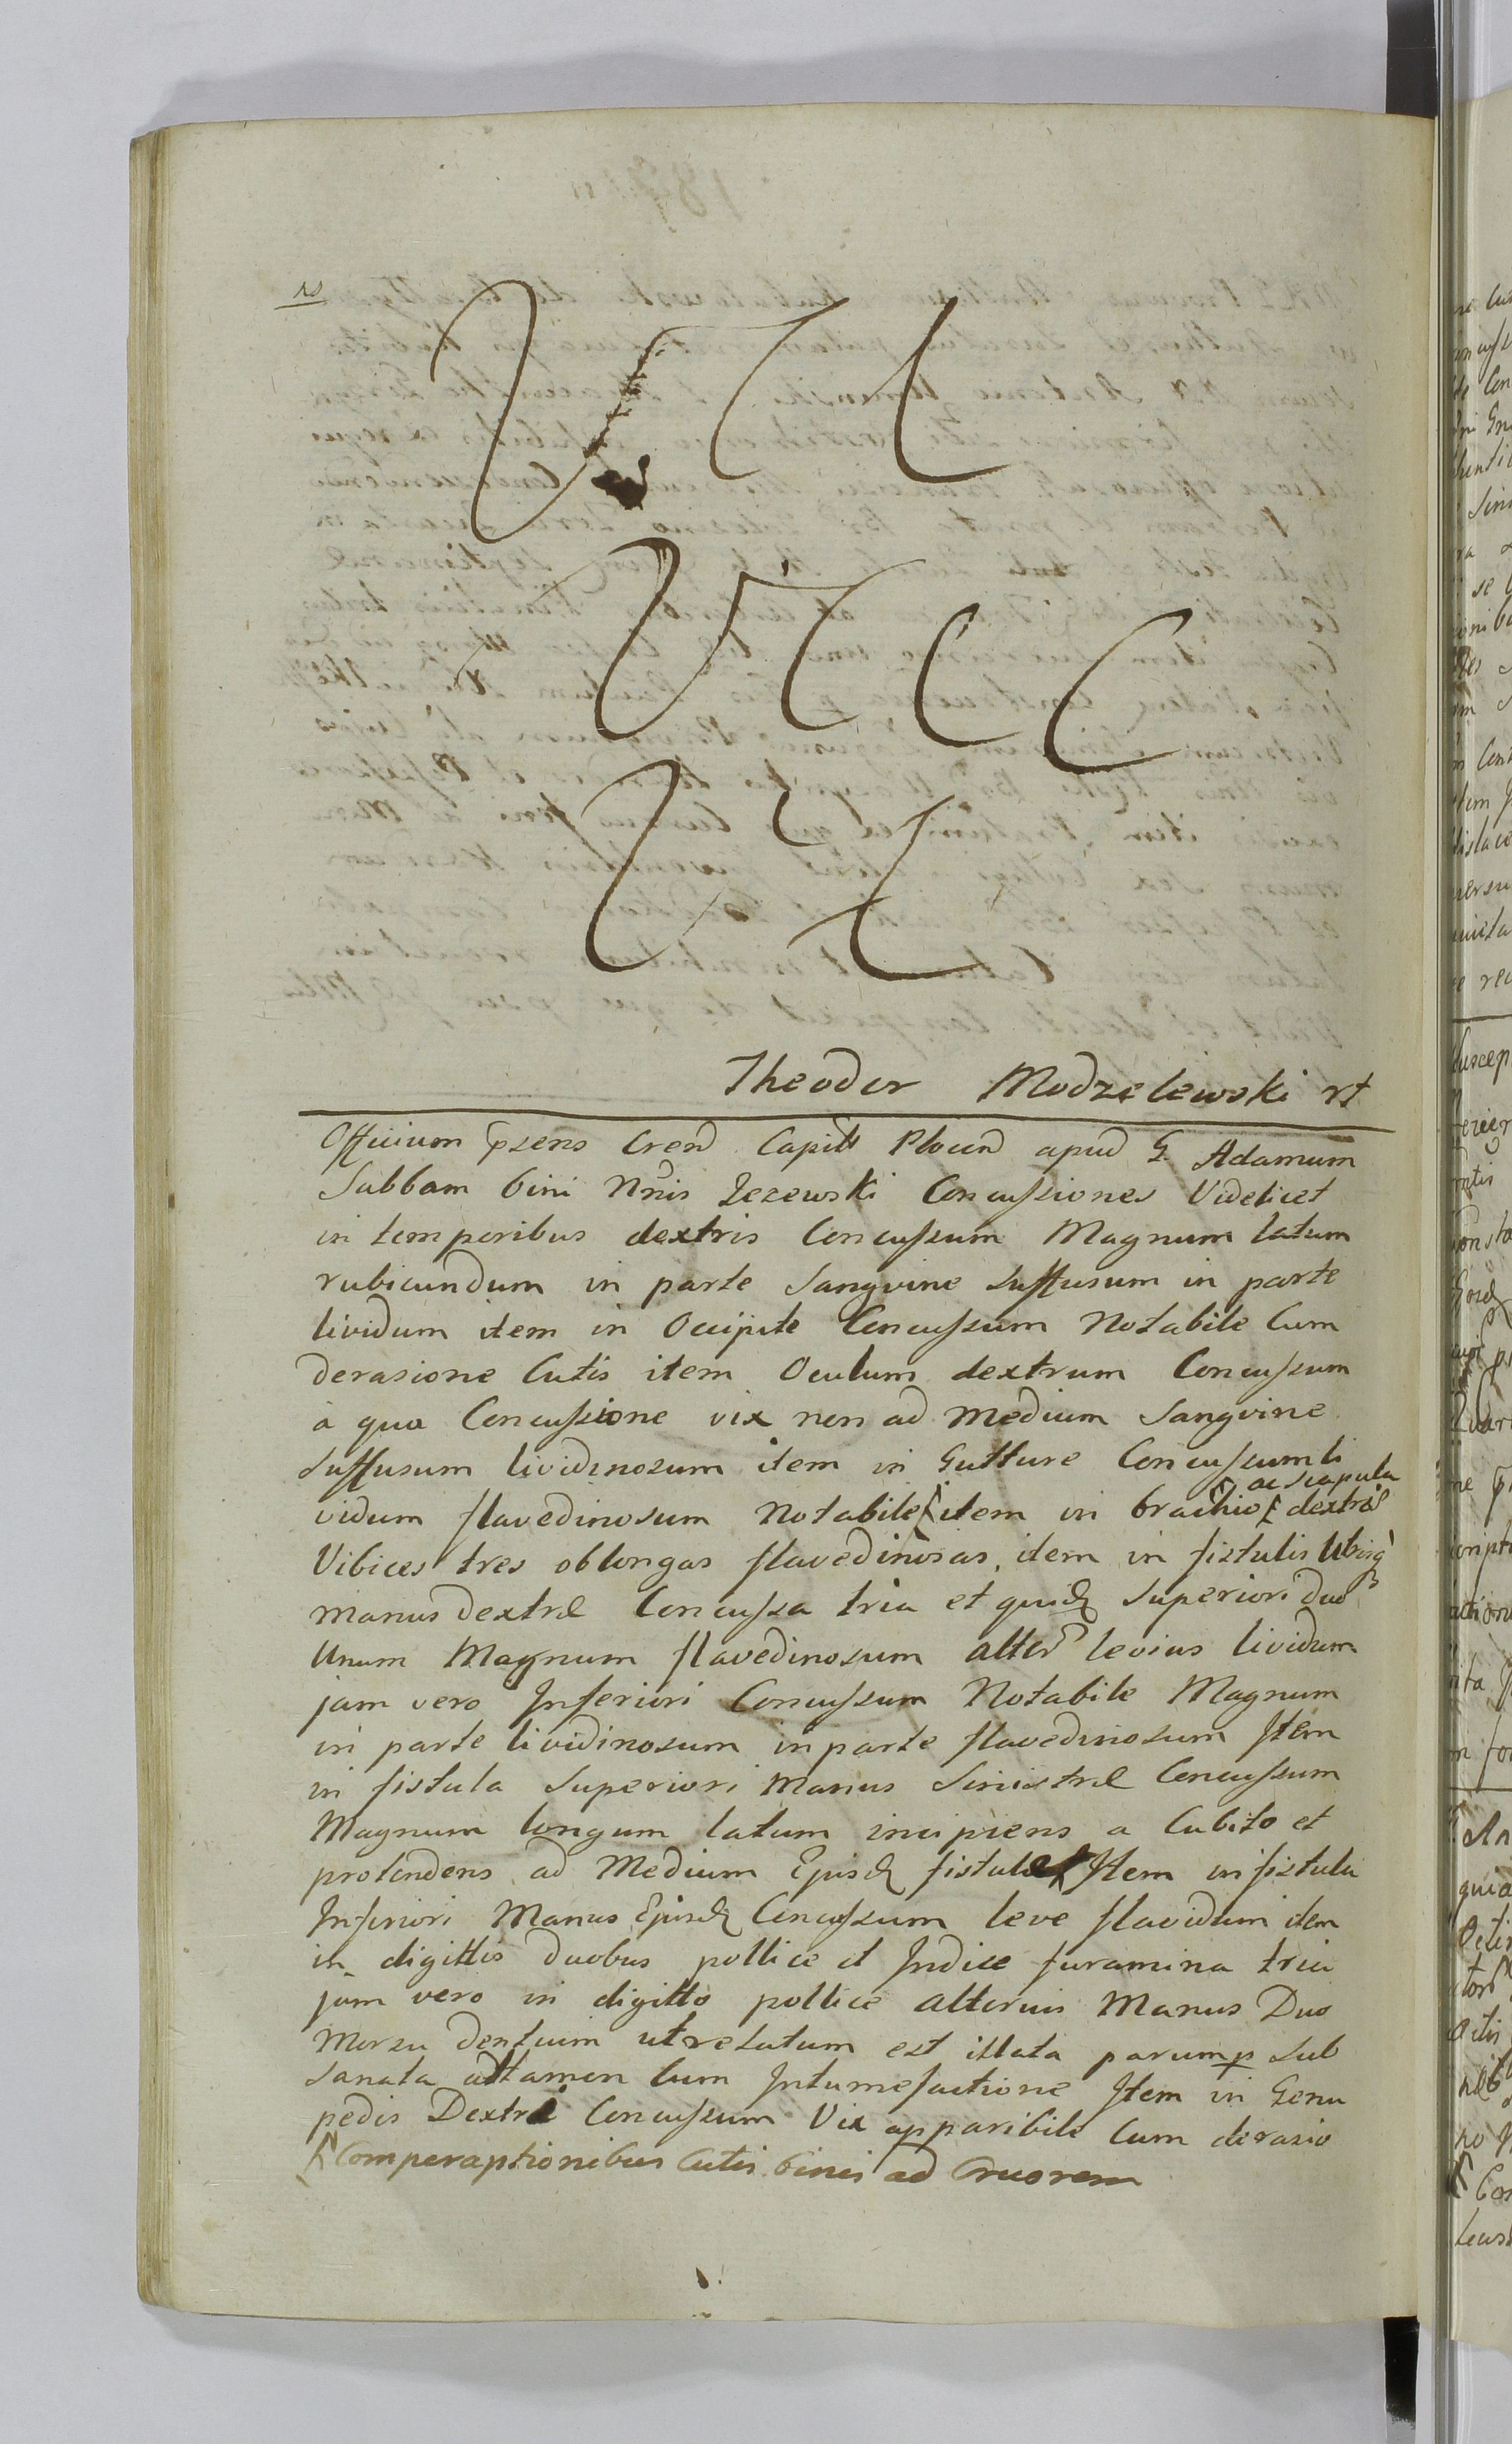 Theodor Modzelewski rt
Officium pzens Cren Capitt Plocen apud G. Adamum
Sabbam bini Nnis Jezewski Concufsiones Videlicet
in temporibus dextris Concufsum Magnum latum
rubicundum in parte Sangvine suffusum in parte
lividum item in Occipite Concufsum Notabile Cum
derasione Cutis item Oculum dextrum Concufsum
a qua Concufsione vix non ad medium Sangvine
suffusum lividinosum item in Gutture Concufsum li
ac scapula
vidum flavedinosum Notabile item in brachio dextris
Vibices tres oblongas flavedinosas, item in fistulis
manus dextræ Concufsa tria et quid Superiori duo
Unum Magnum flavedinosum alter levius lividum
jam vero Inferiori Concufsum Notabile Magnum
in parte lividinosum in parte flavedinosum Item
in fistula Superiori Manus Sinistræ Concufsum
Magnum longum latum incipiens a Cubito et
protendens ad Medium Ejusd fistulæ Item in fistula
Inferiori Manus Ejusd Concufsum leve flavidum item
in digittis duobus pollice et Indice foramina tria
jam vero in digitto pollice alterius Manus Duo
Morsu dentuim ut relatum est illata parump sub
sanata attamen Cum Intumefactione Item in Genu
pedis Dextri Concufsum Vix apparibile Cum derasio
Comperaptionibus Cutis binis ad Cruorem